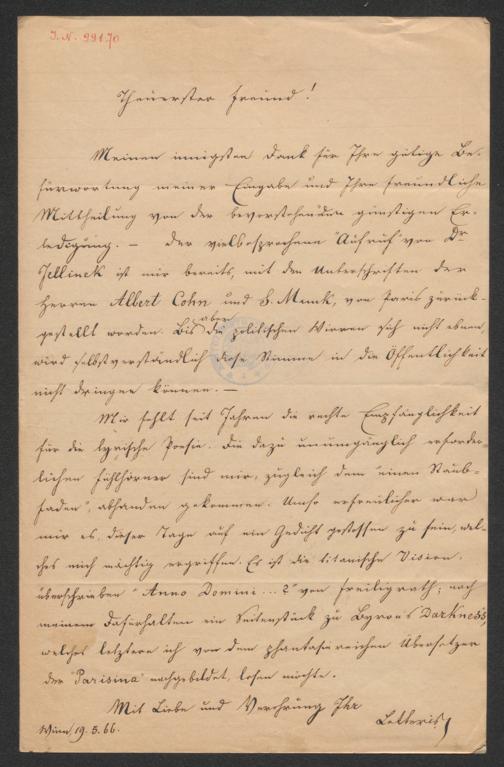 I.N. 99170
Theuerster Freund!
Meinen innigsten Dank für Ihre gütige Be-
fürwortung meiner Eingabe und Ihre freundliche
Mittheilung von der bevorstehenden günstigen Er-
ledigung. – Der vielbesprochene "Aufruf" von Dr
Jellinek ist mir bereits, mit den Unterschriften der
Herren Albert Cohn und S. Munk, von Paris zurück-
gestellt worden. Bis aber die politischen Wirren sich nicht ebnen,
wird selbstverständlich diese Stimme in die Öffentlichkeit
nicht dringen können. –
Mir fehlt seit Jahren die rechte Empfänglichkeit
für die lyrische Poesie. Die dazu unumgänglich erforder-
lichen Fühlhörner sind mir, zugleich dem "einen Staub-
faden", abhanden gekommen. Umso erfreulicher war
mir es, dieser Tage auf ein Gedicht gestossen zu sein, wel-
ches mich mächtig ergriffen. Es ist die titanische Vision,
überschrieben "Anno Domini...?" von Freiligrath; nach
meinem Dafürhalten ein Seitenstück zu Byrons Darkness,
welches letztere ich von dem phantasiereichen Übersetzer
der "Parisina" nachgebildet, lesen möchte.
Mit Liebe und Verehrung Ihr
Letteris
Wien, 19. 5. 66.